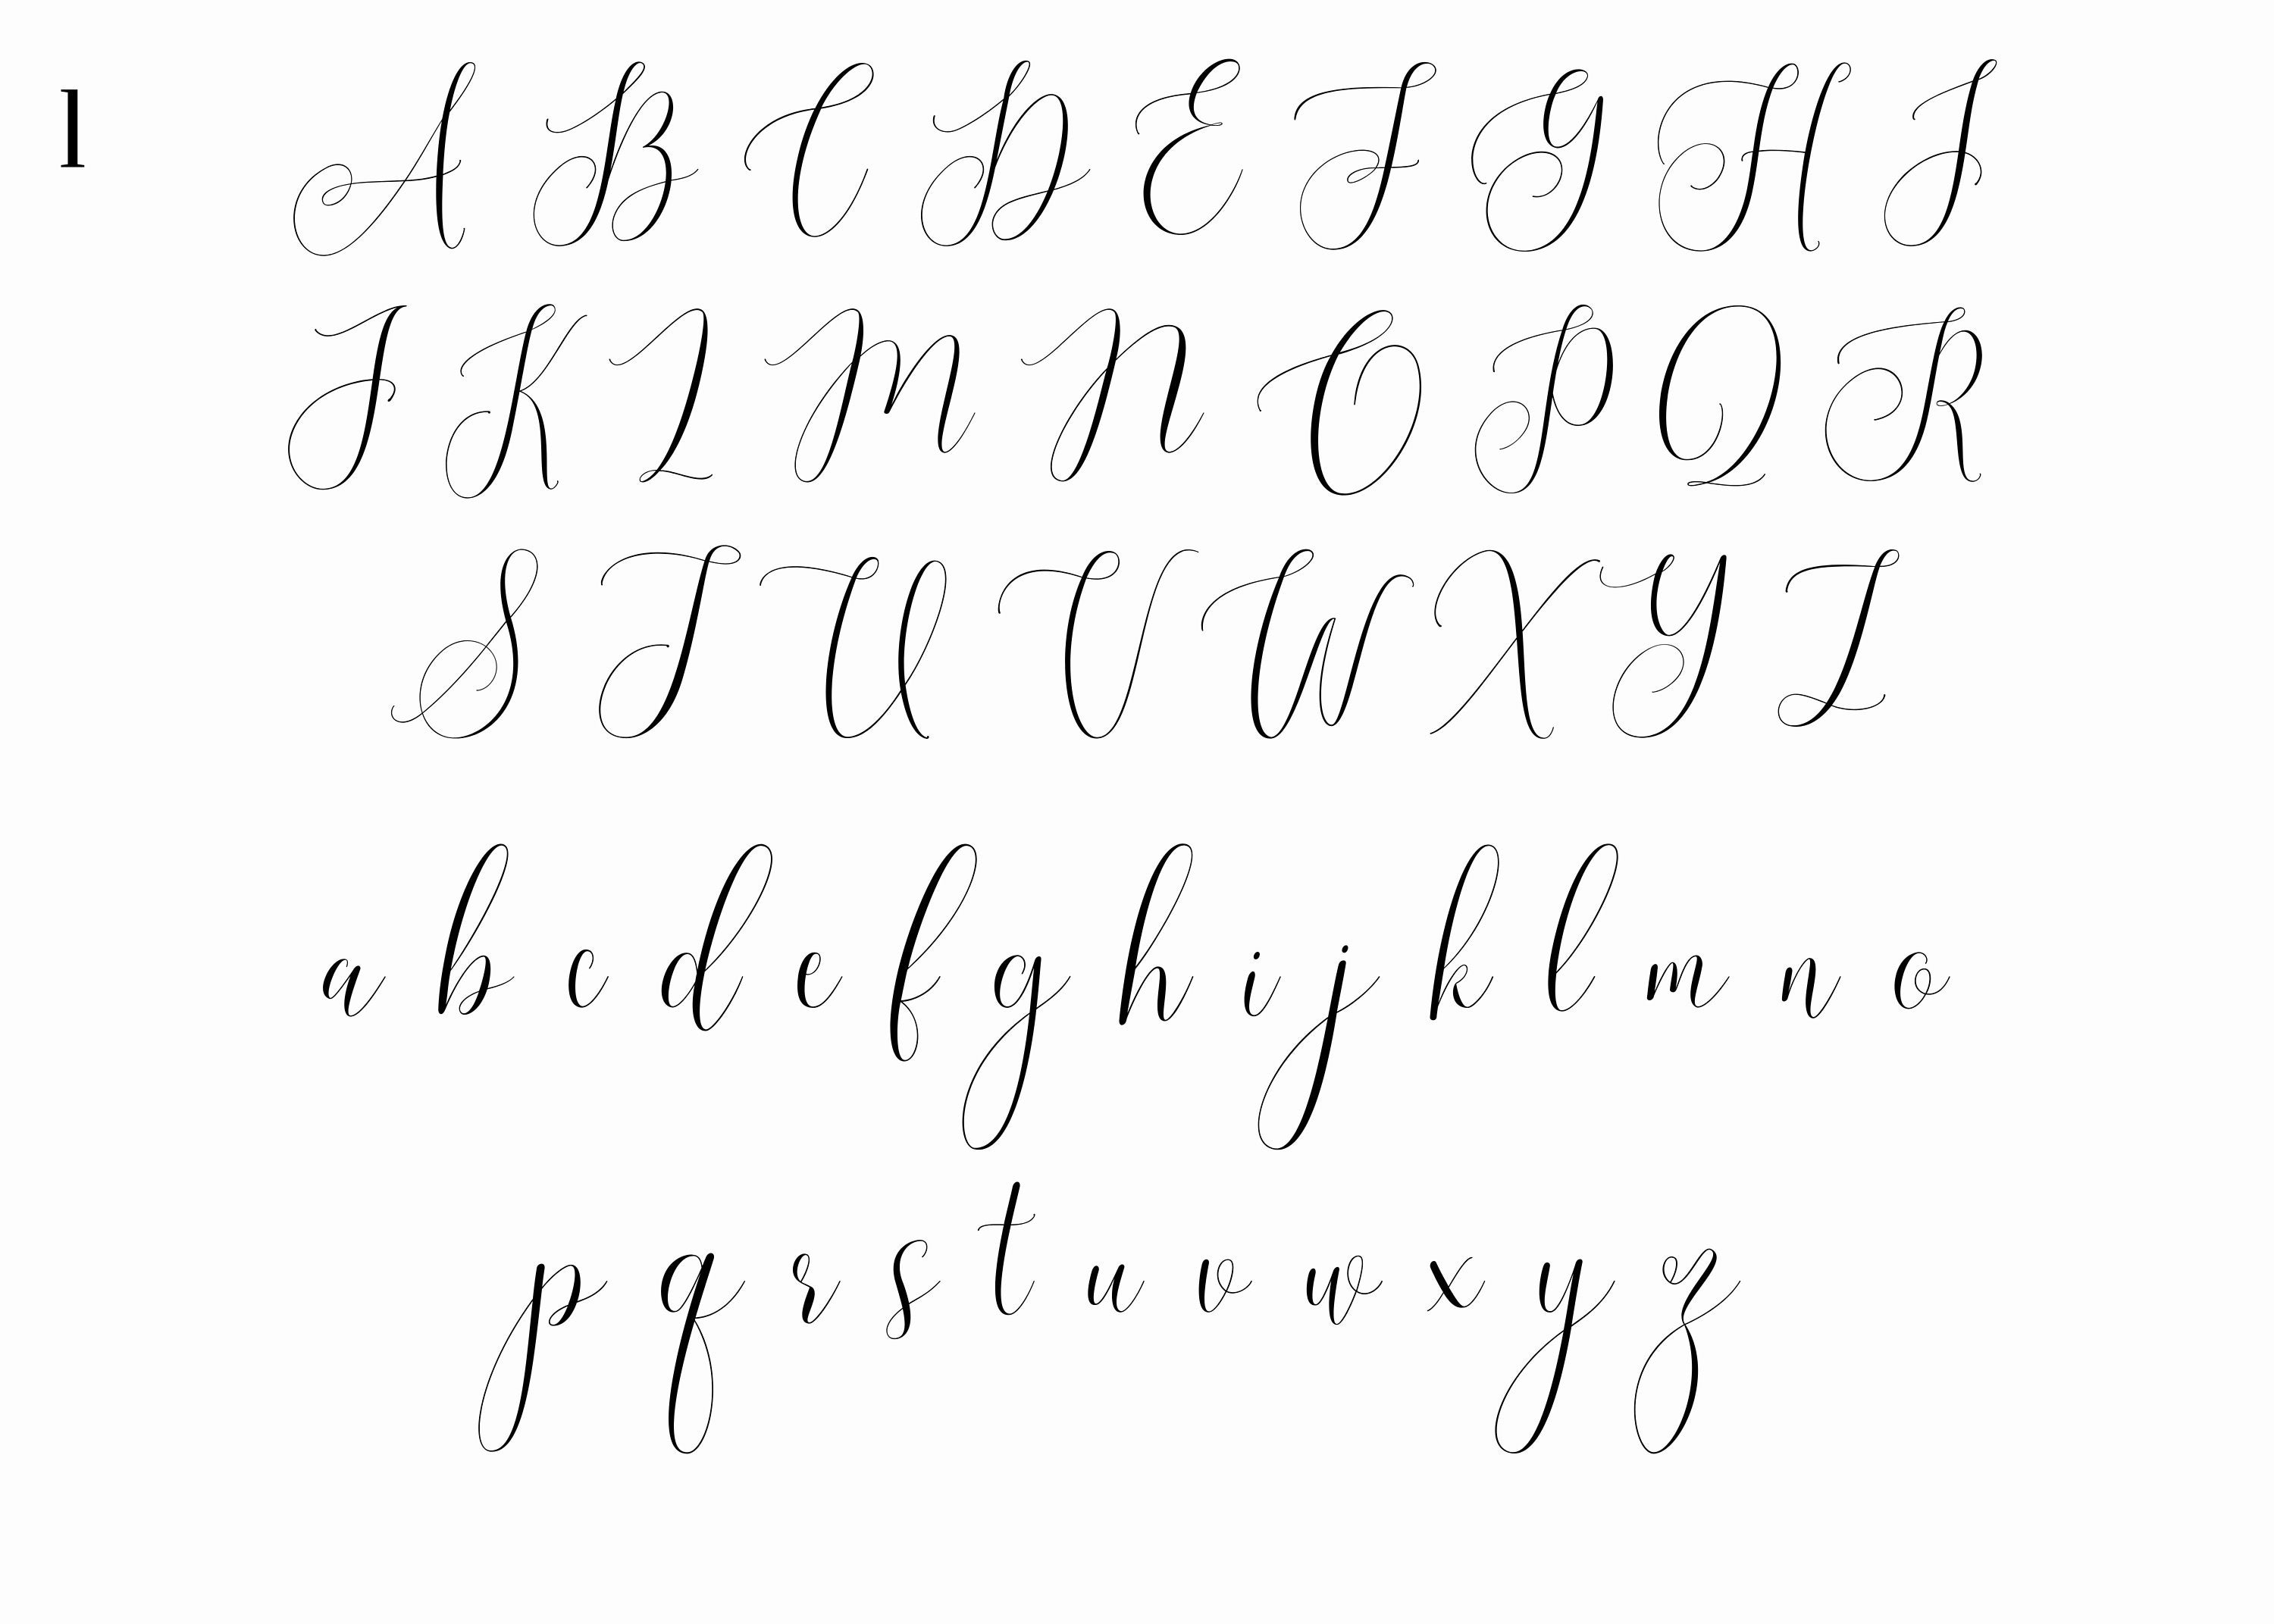 l
A B C D E F G H I
J K L M N O P Q R
S T U V W X Y Z
a b c d e f g h i j k l m n o
p q r s t u v w x y z